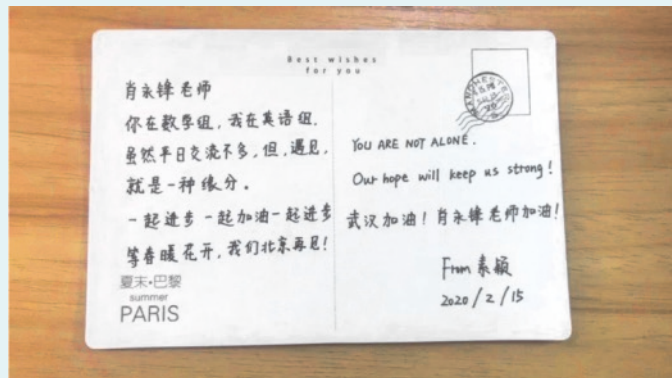 Best wishes
for you
肖永锋老师
你在数学组，我在英语组，
虽然平日交流不多，但，遇见，
就是一种缘分。
一起进步 一起加油一起进步
等春暖花开，我们北京再见！
夏末·巴黎
summer
PARIS
MANCHESTER
YOU ARE NOT ALONE.
Our hope will keep us strong!
武汉加油！肖永锋老师加油！
From 素颖
2020/2/15